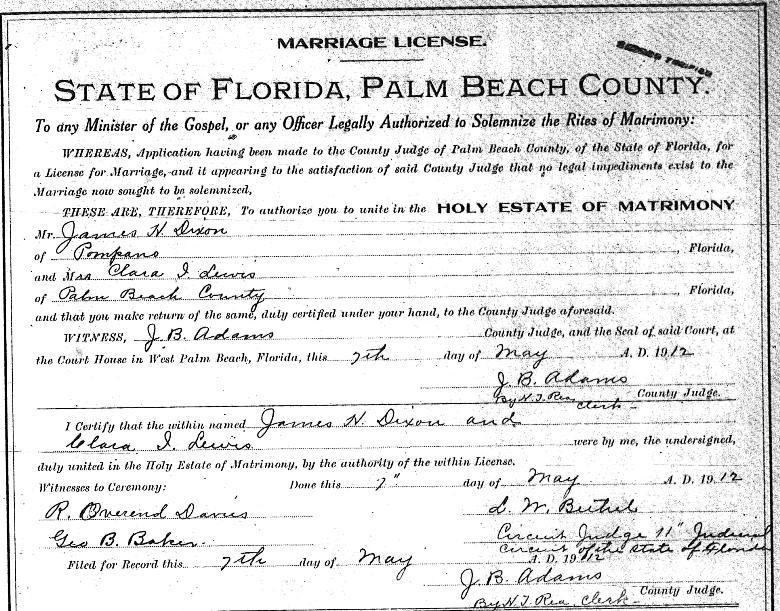 MARRIAGE LICENSE.
STATE OF FLORIDA, PALM BEACH COUNTY.
To any Minister of the Gospel, or any Officer Legally Authorized to Solemnize the Rites of Matrimony:
WHEREAS, Application having been made to the County Judge of Palm Beach County, of the State of Florida, for
a License for Marriage, and it appearing to the satisfaction of said County Judge that no legal impediments exist to the
Marriage now sought to be solemnized,
THESE ARE, THEREFORE, To authorize you to unite in the HOLY ESTATE OF MATRIMONY
Mr. James N Dixon
of Pompano, Florida,
and Mss Clara I Lewis
of Palm Beach County, Florida,
and that you make return of the same, duly certified under your hand, to the County Judge aforesaid.
WITNESS, J. B. Adams County Judge, and the Seal of said Court, at
the Court House in West Palm Beach, Florida, this 7th day of May A. D. 1912
J. B. Adams
By N. T. Rea Clerk County Judge.
I Certify that the within named James N Dixon and
Clara I. Lewis were by me, the undersigned,
duly united in the Holy Estate of Matrimony, by the authority of the within License.
Witnesses to Ceremony: Done this 7" day of May A. D. 1912
R. Overend Davis L. W. Bethel
Geo B. Baker Circuit Judge 11" Judicial
Circuit of the State of Florida
Filed for Record this 7th day of May A. D. 1912
J. B. Adams County Judge.
By N. T. Rea, Clerk